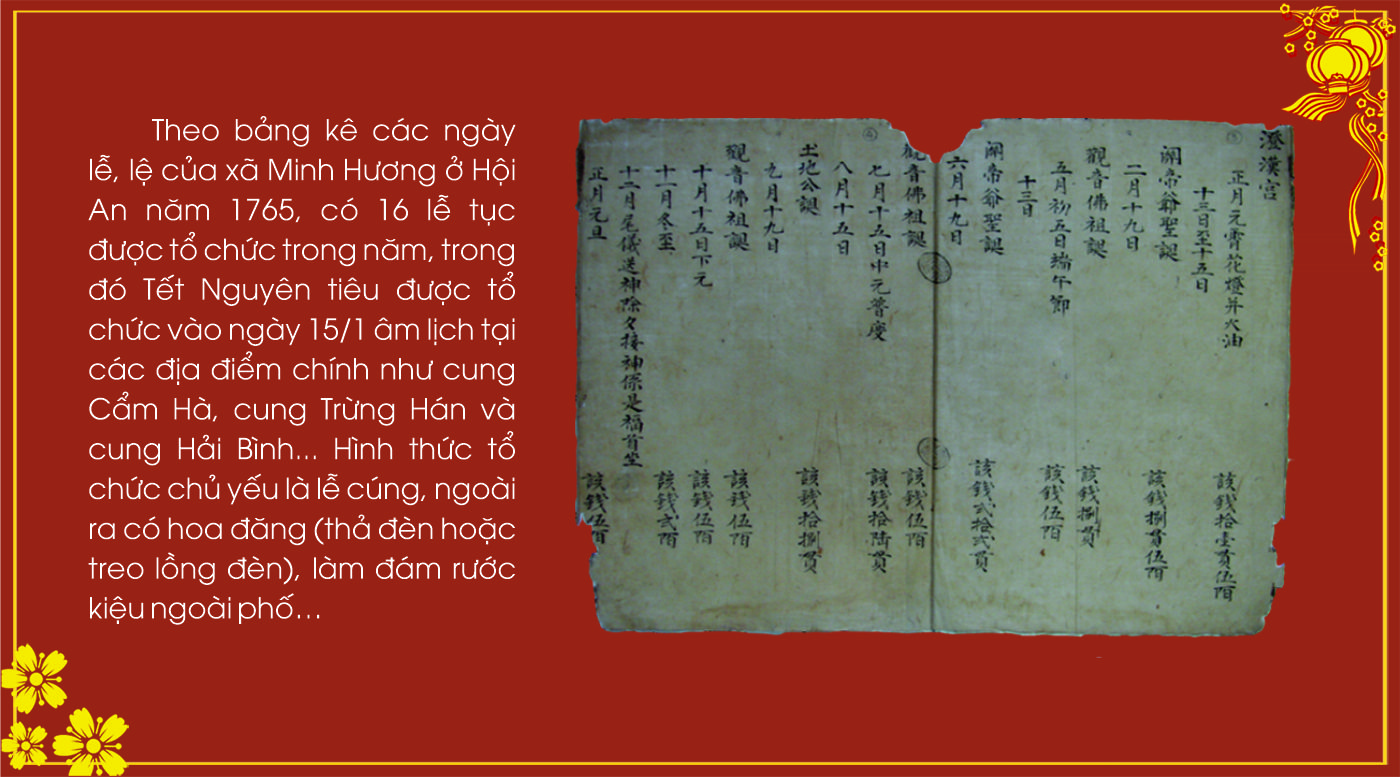 Theo bảng kê các ngày
lễ, lệ của xã Minh Hương ở Hội
An năm 1765, có 16 lễ tục
được tổ chức trong năm, trong
đó Tết Nguyên tiêu được tổ
chức vào ngày 15/1 âm lịch tại
các địa điểm chính như cung
Cẩm Hà, cung Trừng Hán và
cung Hải Bình... Hình thức tổ
chức chủ yếu là lễ cúng, ngoài
ra có hoa đăng (thả đèn hoặc
treo lồng đèn), làm đám rước
kiệu ngoài phố...
澄漢宫
正月元霄花燈并火油 該銭拾壹貫伍陌
十三日至十五日
關帝爺聖誕 該銭捌貫伍陌
二月十九日
觀音佛祖誕 該銭捌貫
五月初五日端午節 該銭伍陌
十三日
關帝爺聖誕 該銭弍拾弍貫
六月十九日
觀音佛祖誕 該銭伍陌
七月十五日中元普度 該銭拾陸貫
八月十五日
土地公誕 該銭拾捌貫
九月十九日
觀音佛祖誕 該銭伍陌
十月十五日下元 該銭伍陌
十一月冬至 該銭弍陌
十二月尾儀送神除夕接神係是福首坐
正月元旦 該銭伍陌